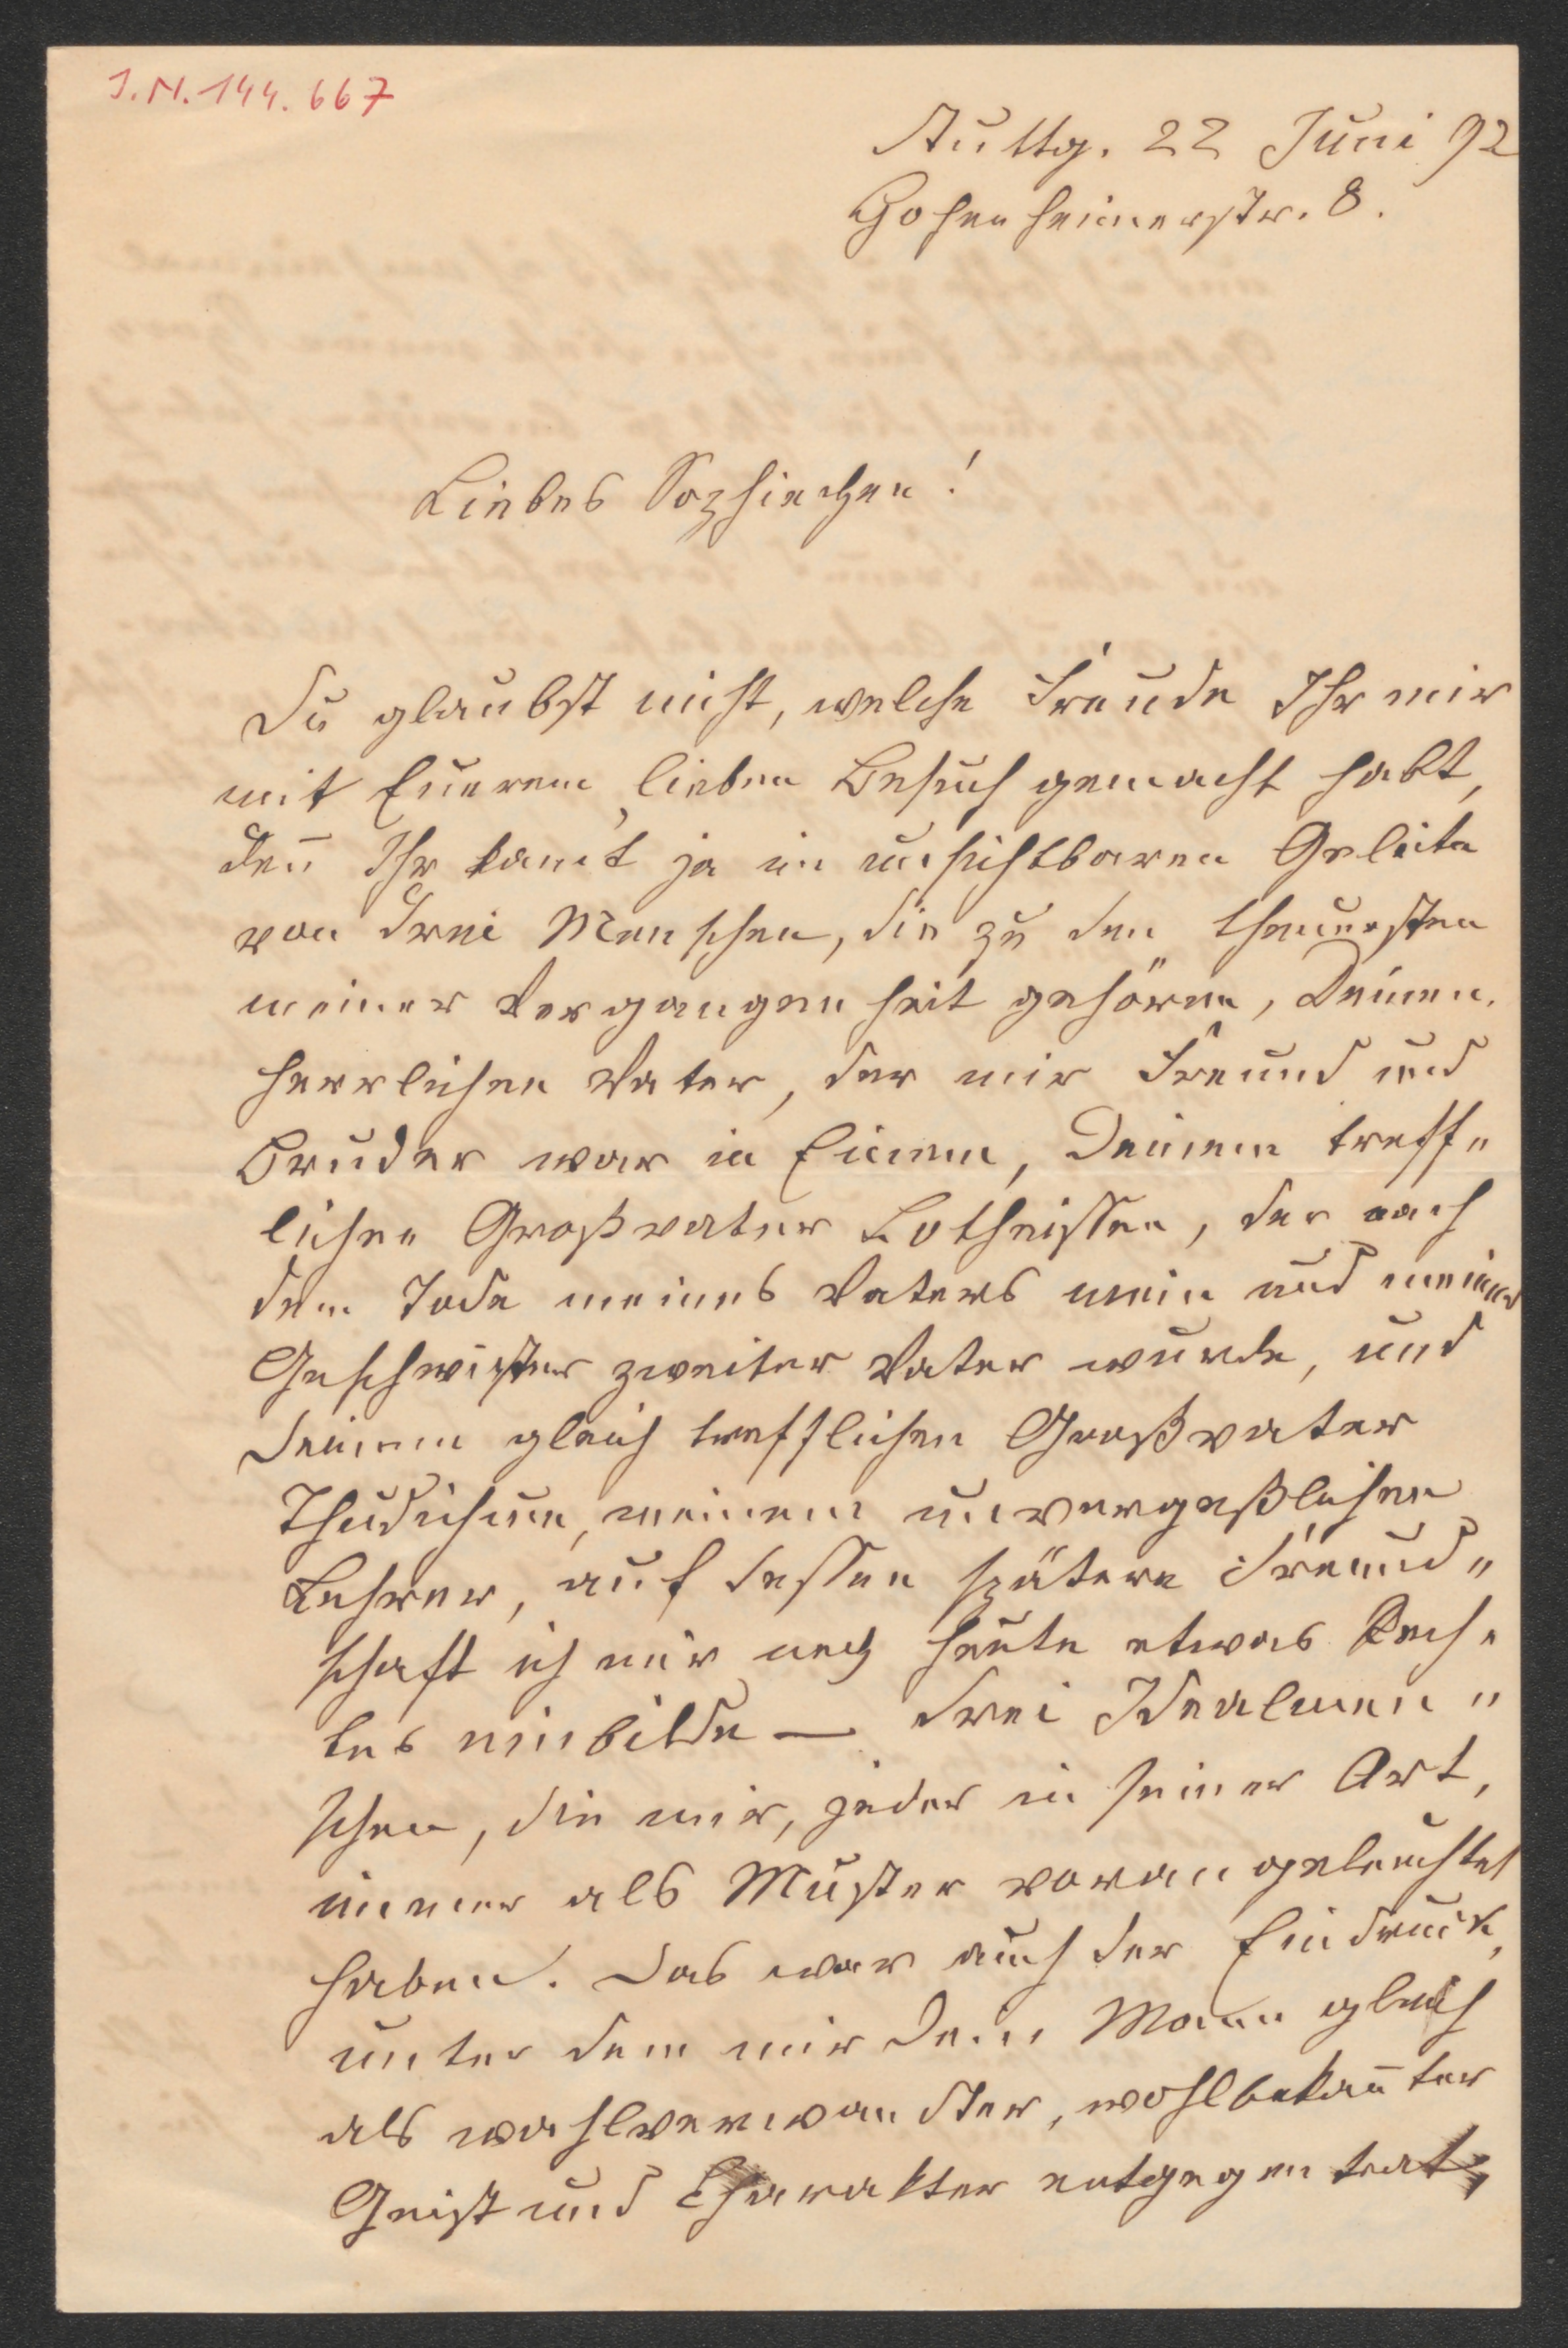 I.N. 144.667
Stuttg. 22 Juni 92
Hohenheimerstr. 8.
Liebes Sophiechen!
Du glaubst nicht, welche Freude Ihr mir
mit Euerem lieben Besuch gemacht habt,
deñ Ihr kamt ja im unsichtbaren Geleite
von drei Menschen, die zu den theuersten
meiner Vergangenheit gehören, Deinem
herrlichen Vater, der mir Freund und
Bruder war in Einem, Deinem treff„
lichen Großvater Lotheissen, der nach
dem Tode meines Vaters mein und meiner
Geschwister zweiter Vater wurde, und
Deinem gleich trefflichen Großvater
Thudichum, meinem unvergeßlichen
Lehrer, auf dessen spätere Freund„
schaft ich mir noch heute etwas Rech„
tes einbilde — drei Idealmen„
schen, die mir, jeder in seiner Art,
immer als Muster vorangeleuchtet
haben. Das war auch der Eindruck,
unter dem mir Dein Mann gleich
als wahlverwandter, wohlbekañter
Geist und Charakter entgegen trat,